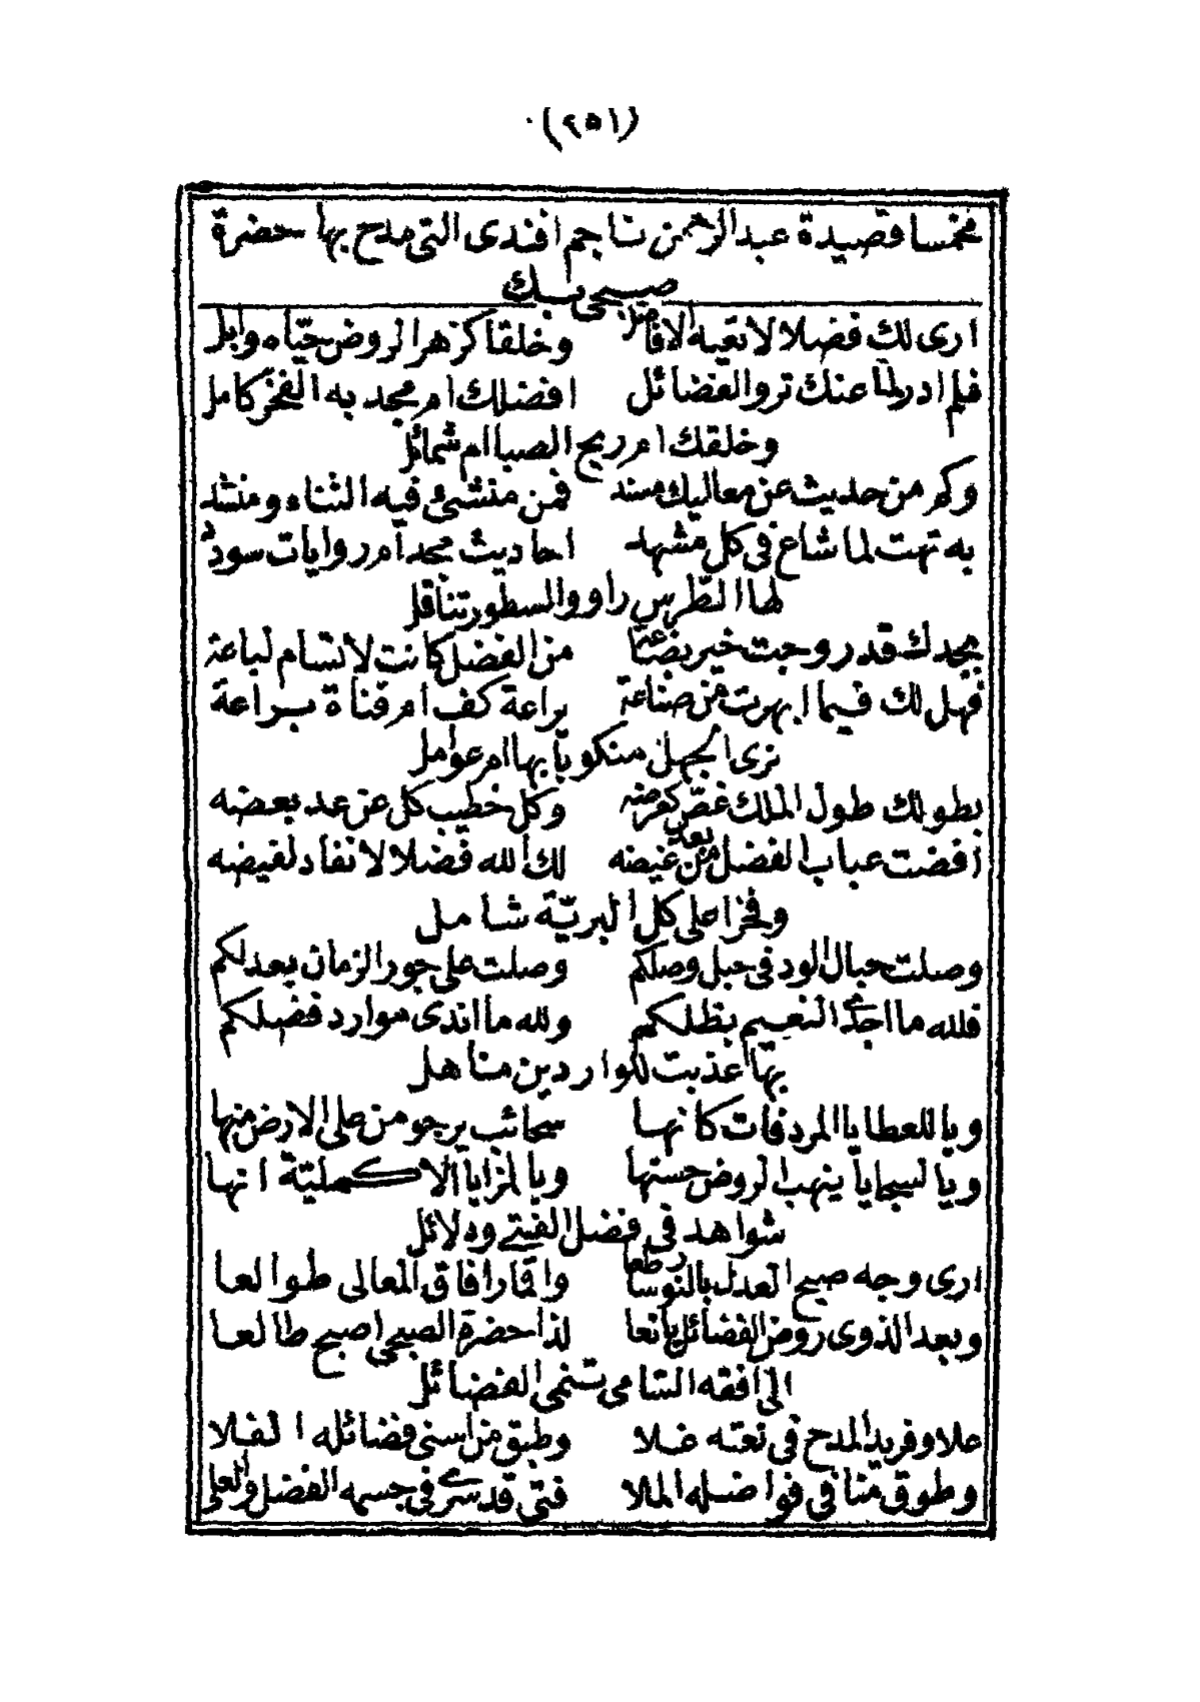 (٢٥١)
مخمسا قصيدة عبد الرحمن ناجم افندى التى مدح بها حضرة
صبحى بك
ارى لك فضلا لا تعيه الافاضل وخلقا كزهر الروض حياه وابل
فلم ادر لما عنك تروالفضائل افضلك ام مجد به الفخر كامل
وخلقك ام ريح الصبا ام شمائل
وكم من حديث عن معاليك مسند فمن منشئ فيه الثناء ومنشد
به تهت لما شاع فى كل مشهد احاديث مجد ام روايات سودد
لها الطرس راو والسطور تناقل
بمجدك قد روجت خير بضاعة من الفضل كانت لا تسام لباعة
فهل لك فيما ابهرت من صناعة براعة كف ام قناة براعة
نرى الجهل منكوبا بها ام عوامل
بطولك طول الملك غص كعرضه وكل خطيب كل عن عد بعضه
افضت عباب الفضل من بعد غيضه لك الله فضلا لا نفاد لفيضه
وفخرا على كل البرية شامل
وصلت حبال الود فى حبل وصلكم وصلت على جور الزمان بعدلكم
فلله ما اجدى النعيم بظلكم ولله ما اندى موارد فضلكم
بها عذبت للواردين مناهل
ويا للعطايا المردفات كانها سحائب يرجو من على الارض منها
ويا لسجايا ينهب الروض حسنها ويا لمزايا الاكملية انها
شواهد فى فضل الفتى ودلائل
ارى وجه صبح العدل بالنور ساطعا واقمار افاق المعالى طوالعا
وبعد الذوى روض الفضائل يانعا لذا حضرة الصبحى اصبح طالعا
الى افقه السامى تنمى الفضائل
علا وفريد المدح فى نعته غلا وطبق من اسنى فضائله الفلا
وطوق منا فى فواضله الملا فتى قد سرى فى جسمه الفضل والعلى